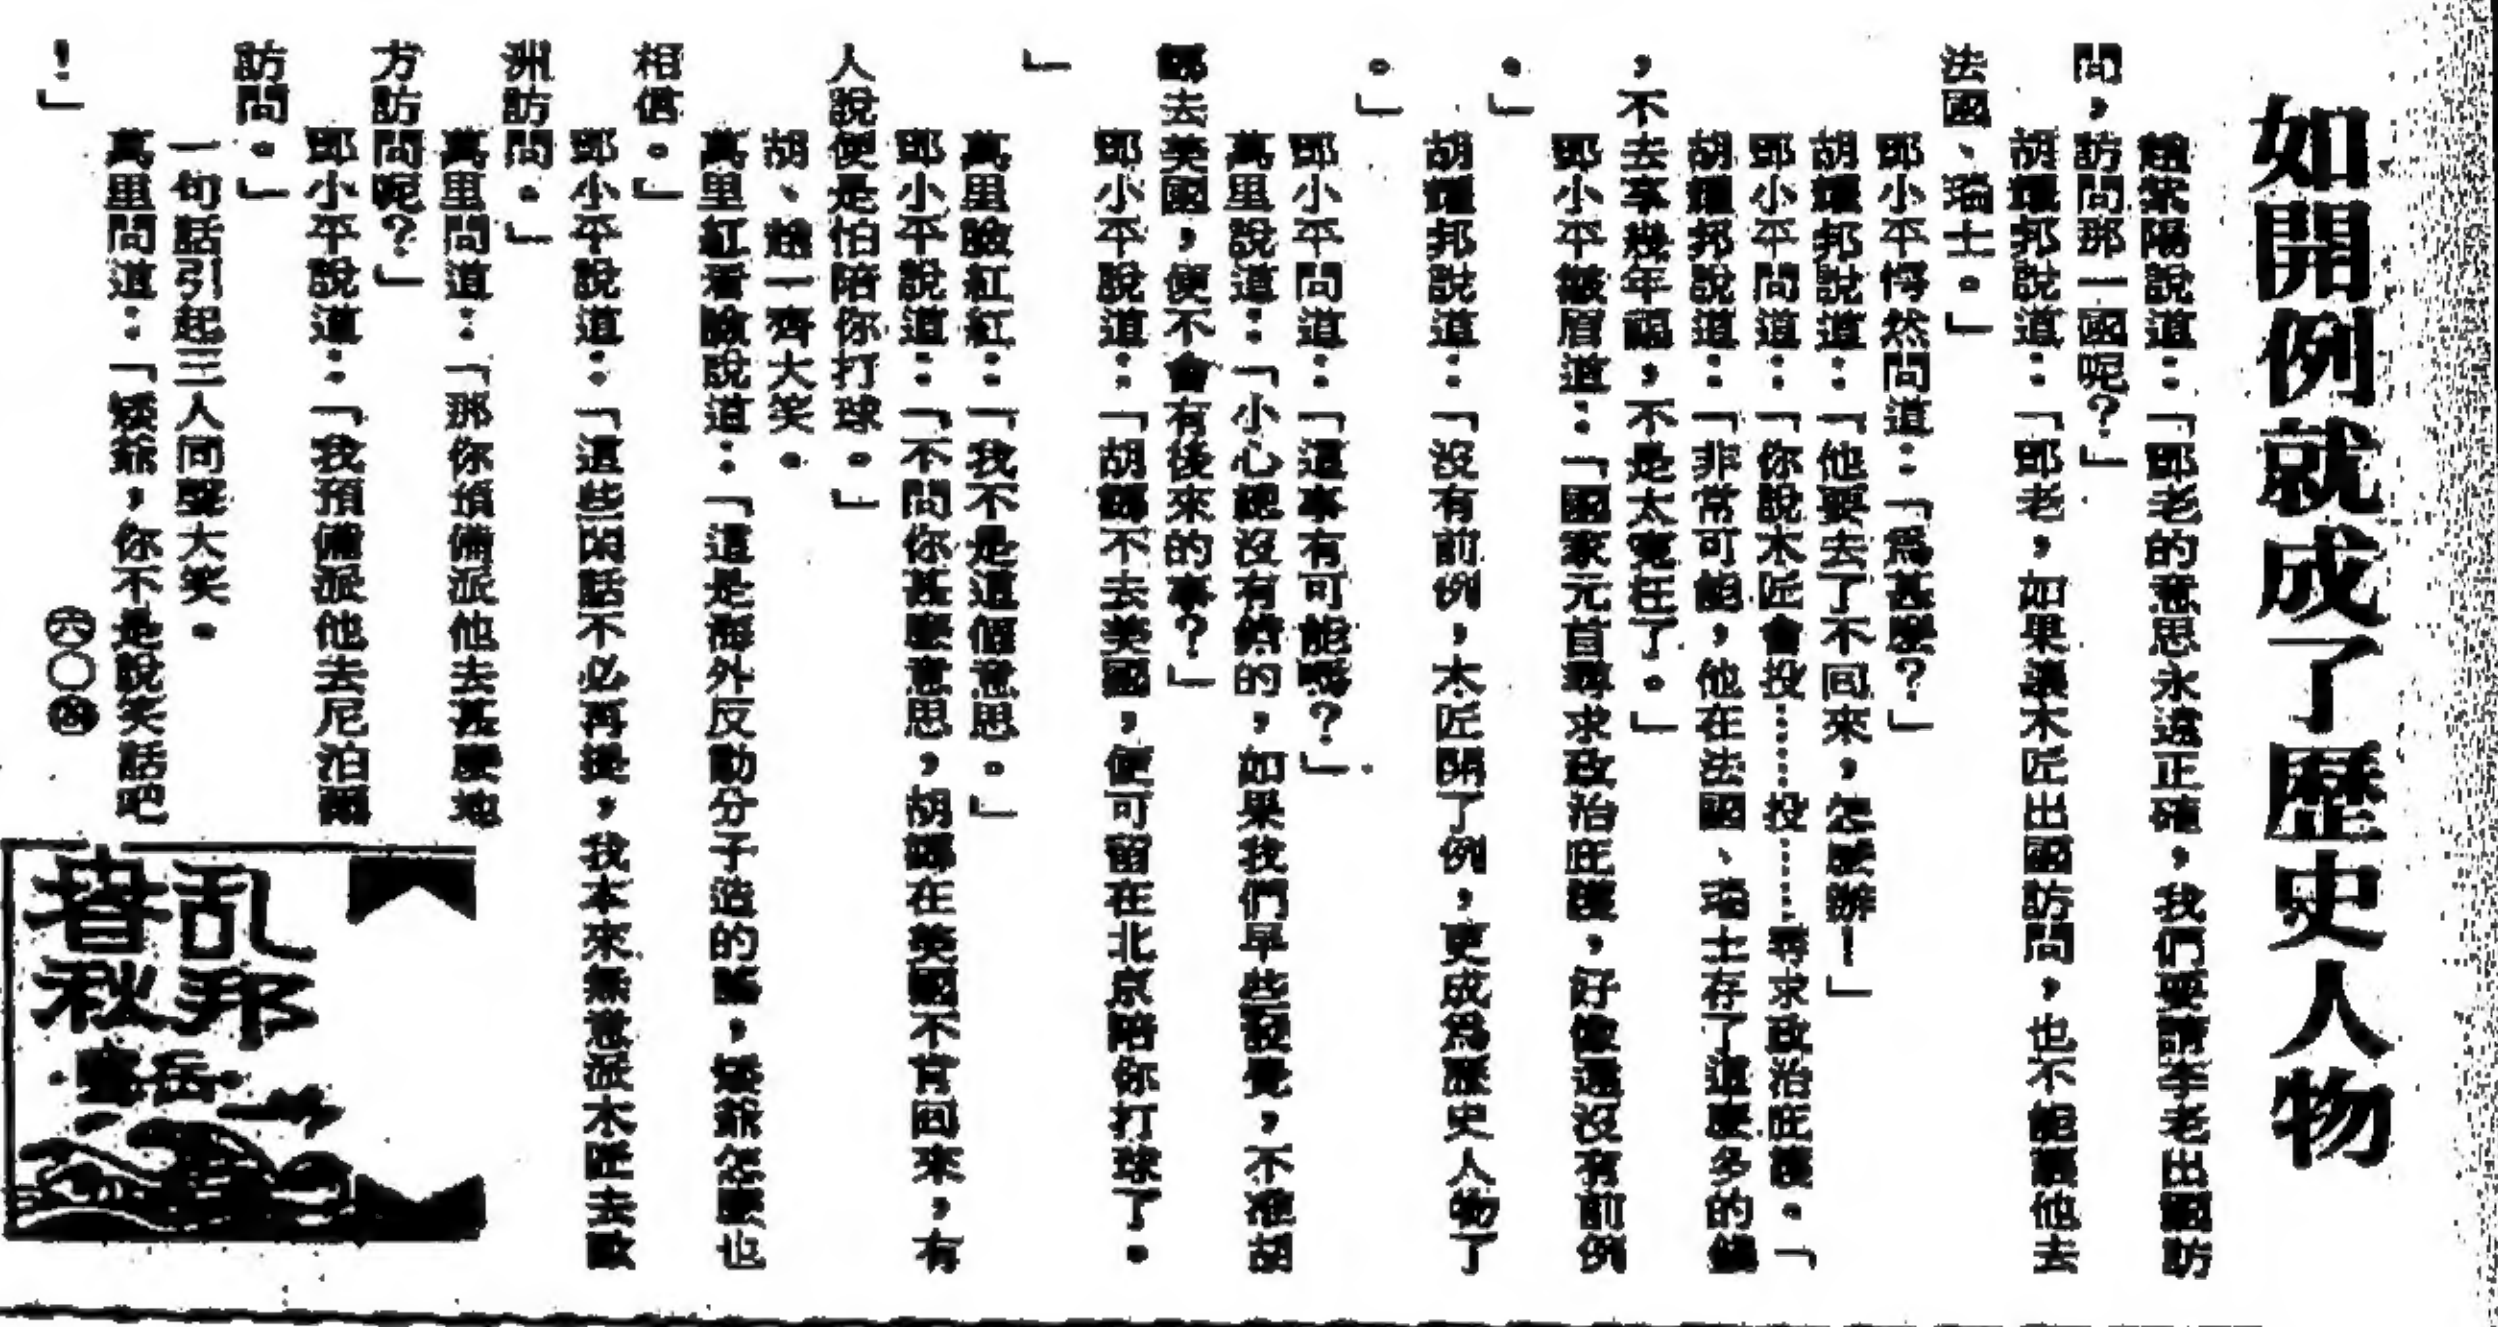 如開例就成了歷史人物
趙紫陽說道：「鄧老的意思永遠正確，我們要請李老出國訪
問，訪問那一國呢？」
胡耀邦說道：「鄧老，如果讓木匠出國訪問，也不能讓他去
法國、瑞士。」
鄧小平愕然問道：「爲甚麼？」
胡耀邦說道：「他要去了不回來，怎麼辦！」
鄧小平問道：「你說木匠會投……投……尋求政治庇護。「
胡耀邦說道：「非常可能，他在法國、瑞士存了這麼多的錢
，不去享幾年福，不是太寃枉了。」
鄧小平皺眉道：「國家元首尋求政治庇護，好像還沒有前例
。」
胡耀邦說道：「沒有前例，木匠開了例，更成爲歷史人物了
。」
鄧小平問道：「這事有可能嗎？」
萬里說道：「小心總沒有錯的，如果我們早些發覺，不准胡
娜去美國，便不會有後來的事？」
鄧小平說道：「胡娜不去美國，便可留在北京陪你打球了。
」
萬里臉紅紅：「我不是這個意思。」
鄧小平說道：「不問你甚麼意思，胡娜在美國不甘回來，有
人說便是怕陪你打球。」
胡、趙一齊大笑。
萬里紅着臉說道：「這是海外反動分子造的謠，矮爺怎麼也
相信。」
鄧小平說道：「這些閑話不必再提，我本來無意派木匠去歐
洲訪問。」
萬里問道：「那你預備派他去甚麼地
方訪問呢？」
鄧小平說道：「我預備派他去尼泊爾
訪問。」
一句話引起三人同聲大笑。
萬里問道：「矮爺，你不是說笑話吧
！」
六〇
乱邦
春秋
岳騫